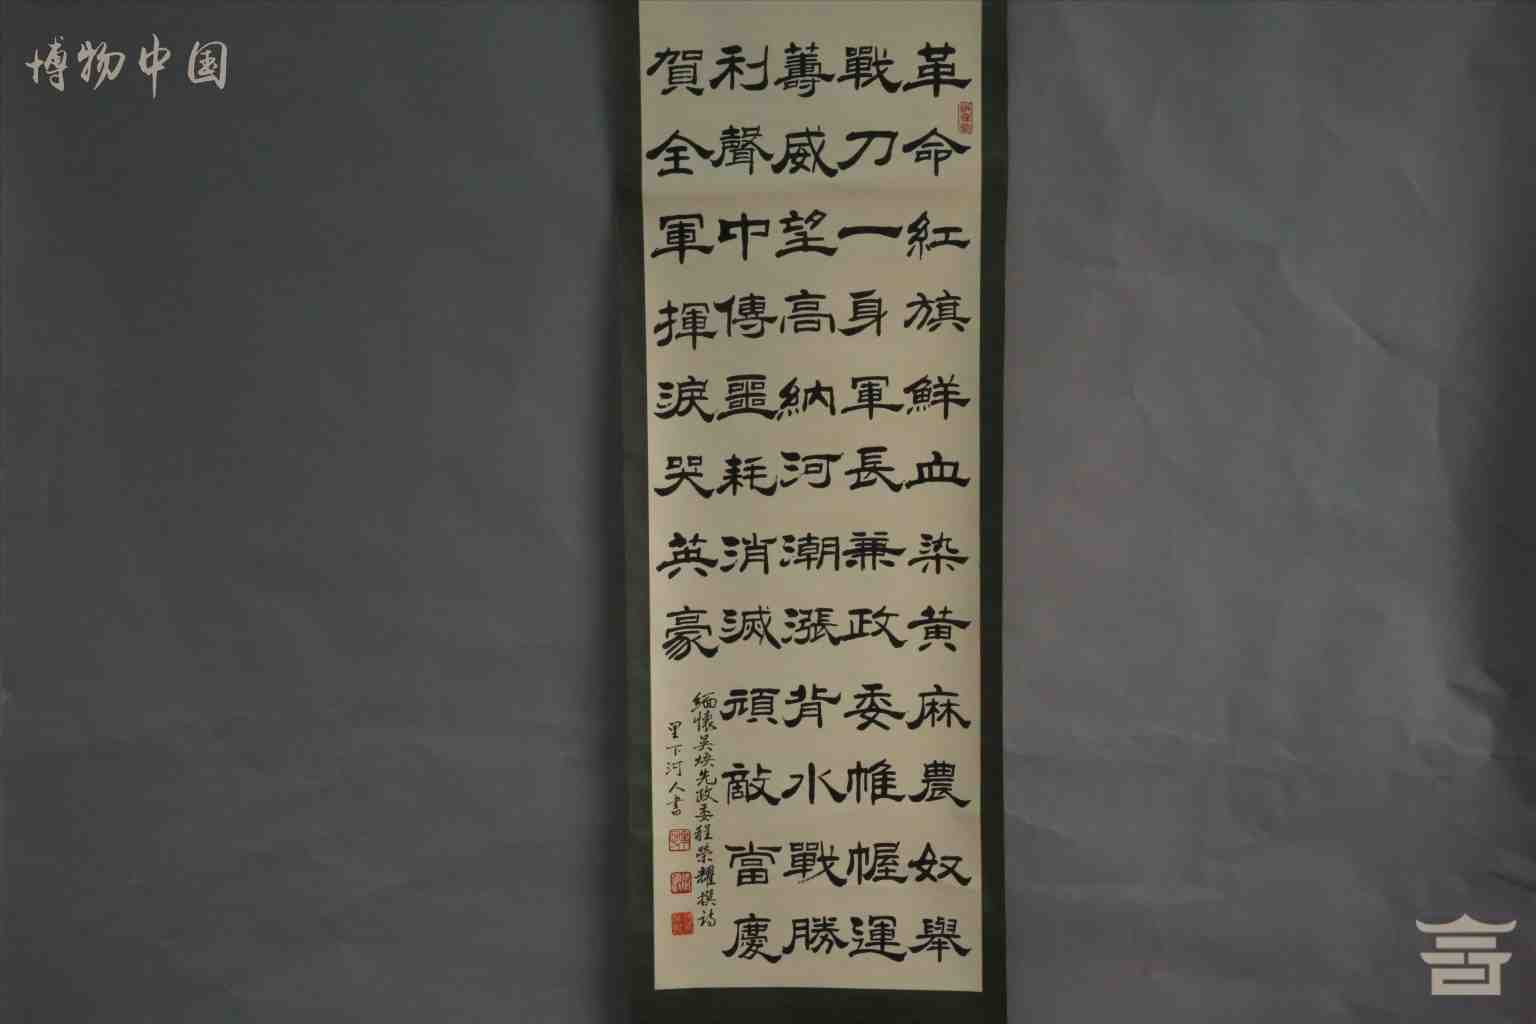 博物中国
革命紅旗鮮血染黄麻農奴舉
戰刀一身軍長兼政委帷幄運
籌威望高納河潮漲背水戰勝
利聲中傳噩耗消滅頑敵當慶
賀全軍揮淚哭英豪
緬懷吴焕先政委程榮耀撰詩
里下河人書